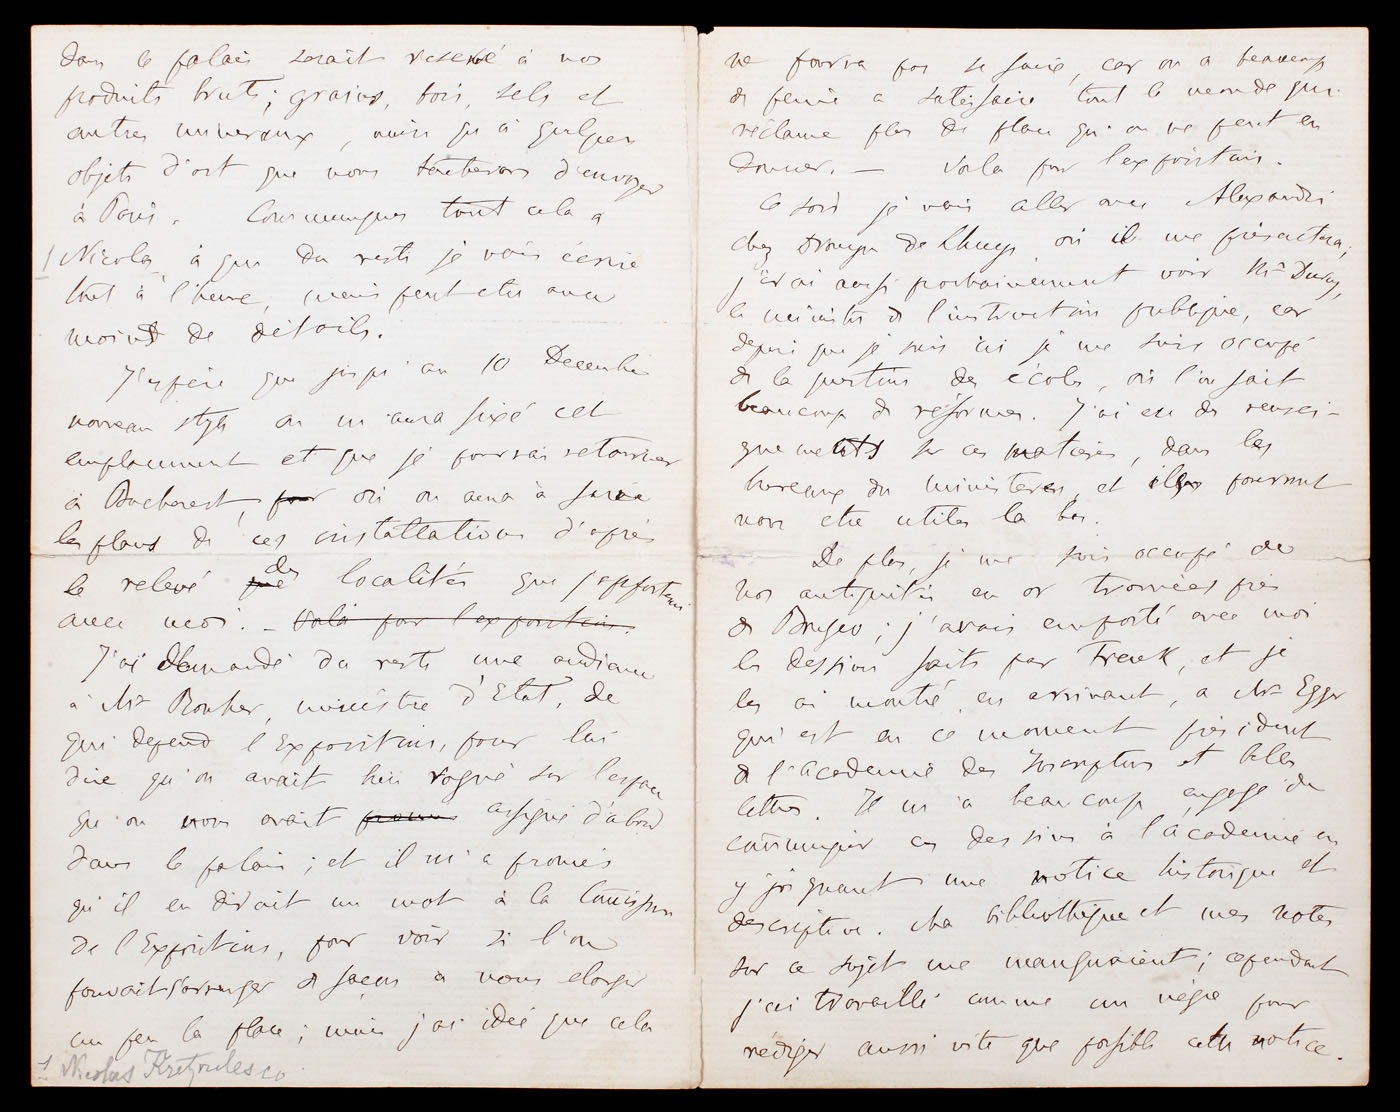 dans le palais serait reservé à nos
produits bruts; grains, bois, sels et
autres mineraux, ainsi qu'à quelques
objets d'art que nous tacherons d'envoyer
à Paris. Communiquez tout cela a
1 Nicolas, à qui du reste je vais écrire
tout à l'heure, mais peut-etre avec
moins de détails.
J'espère que jusqu'au 10 Decembre
nouveau style on m'aura fixé cet
emplacement et que je pourrai retourner
à Bucharest, pour où on aura à faire
les plans de ces installations d'après
le relevé des localités que j'apporterai
avec moi. – Voilà pour l'exposition.
J'ai demandé du reste une audience
à Mr Rouher, ministre d'Etat, de
qui depend l'Exposition, pour lui
dire qu'on avait bien rogné sur l'espace
qu'on nous avait assigné d'abord
dans le palais; et il m'a promis
qu'il en dirait un mot à la Comission
de l'Exposition, pour voir si l'on
pouvait s'arranger de façon à nous elargir
un peu la place; mais j'ai idée que cela
1 Nicolas Kretzulesco
ne pourra pas se faire, car on a beaucoup
de peine a satisfaire tout le monde qui
réclame plus de place qu'on ne peut en
donner. — Voila pour l'exposition.
Ce soir je vais aller avec Alexandri
chez Drouyn de Lhuys, où il me présentera;
j'irai aussi prochainement voir Mr Duruy,
le ministre de l'instruction publique, car
depuis que je suis ici je me suis occupé
de la question des écoles, où l'on fait
beaucoup de réformes. J'ai eu des rensei-
gnements sur ces matières, dans les
bureaux du ministère, et ils pourront
nous etre utiles la bas.
De plus, je me suis occupé de
nos antiquités en or trouvées près
de Buzeo; j'avais emporté avec moi
les dessins faits par Trenk, et je
les ai montré, en arrivant, a Mr Egger
qui est en ce moment président
de l'Academie des Inscriptions et belles
lettres. Il m'a beaucoup engagé de
communiquer ces dessins à l'Academie en
y joignant une notice historique et
descriptive. Ma bibliothèque et mes notes
sur ce sujet me manquaient; cependant
j'ai travaillé comme un nègre pour
rédiger aussi vite que possible cette notice.